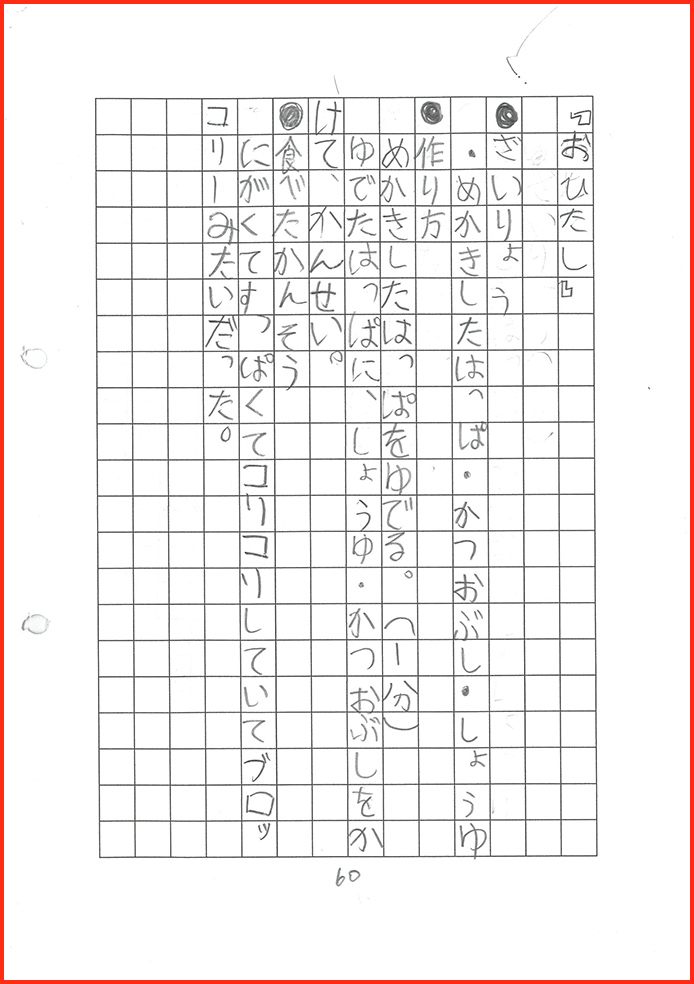 『おひたし』
●ざいりょう
・めかきしたはっぱ・かつおぶし・しょうゆ
●作り方
めかきしたはっぱをゆでる。(一分)
ゆでたはっぱに、しょうゆ・かつおぶしをか
けて、かんせい。
●食べたかんそう
にがくてすっぱくてコリコリしていてブロッ
コリーみたいだった。
60